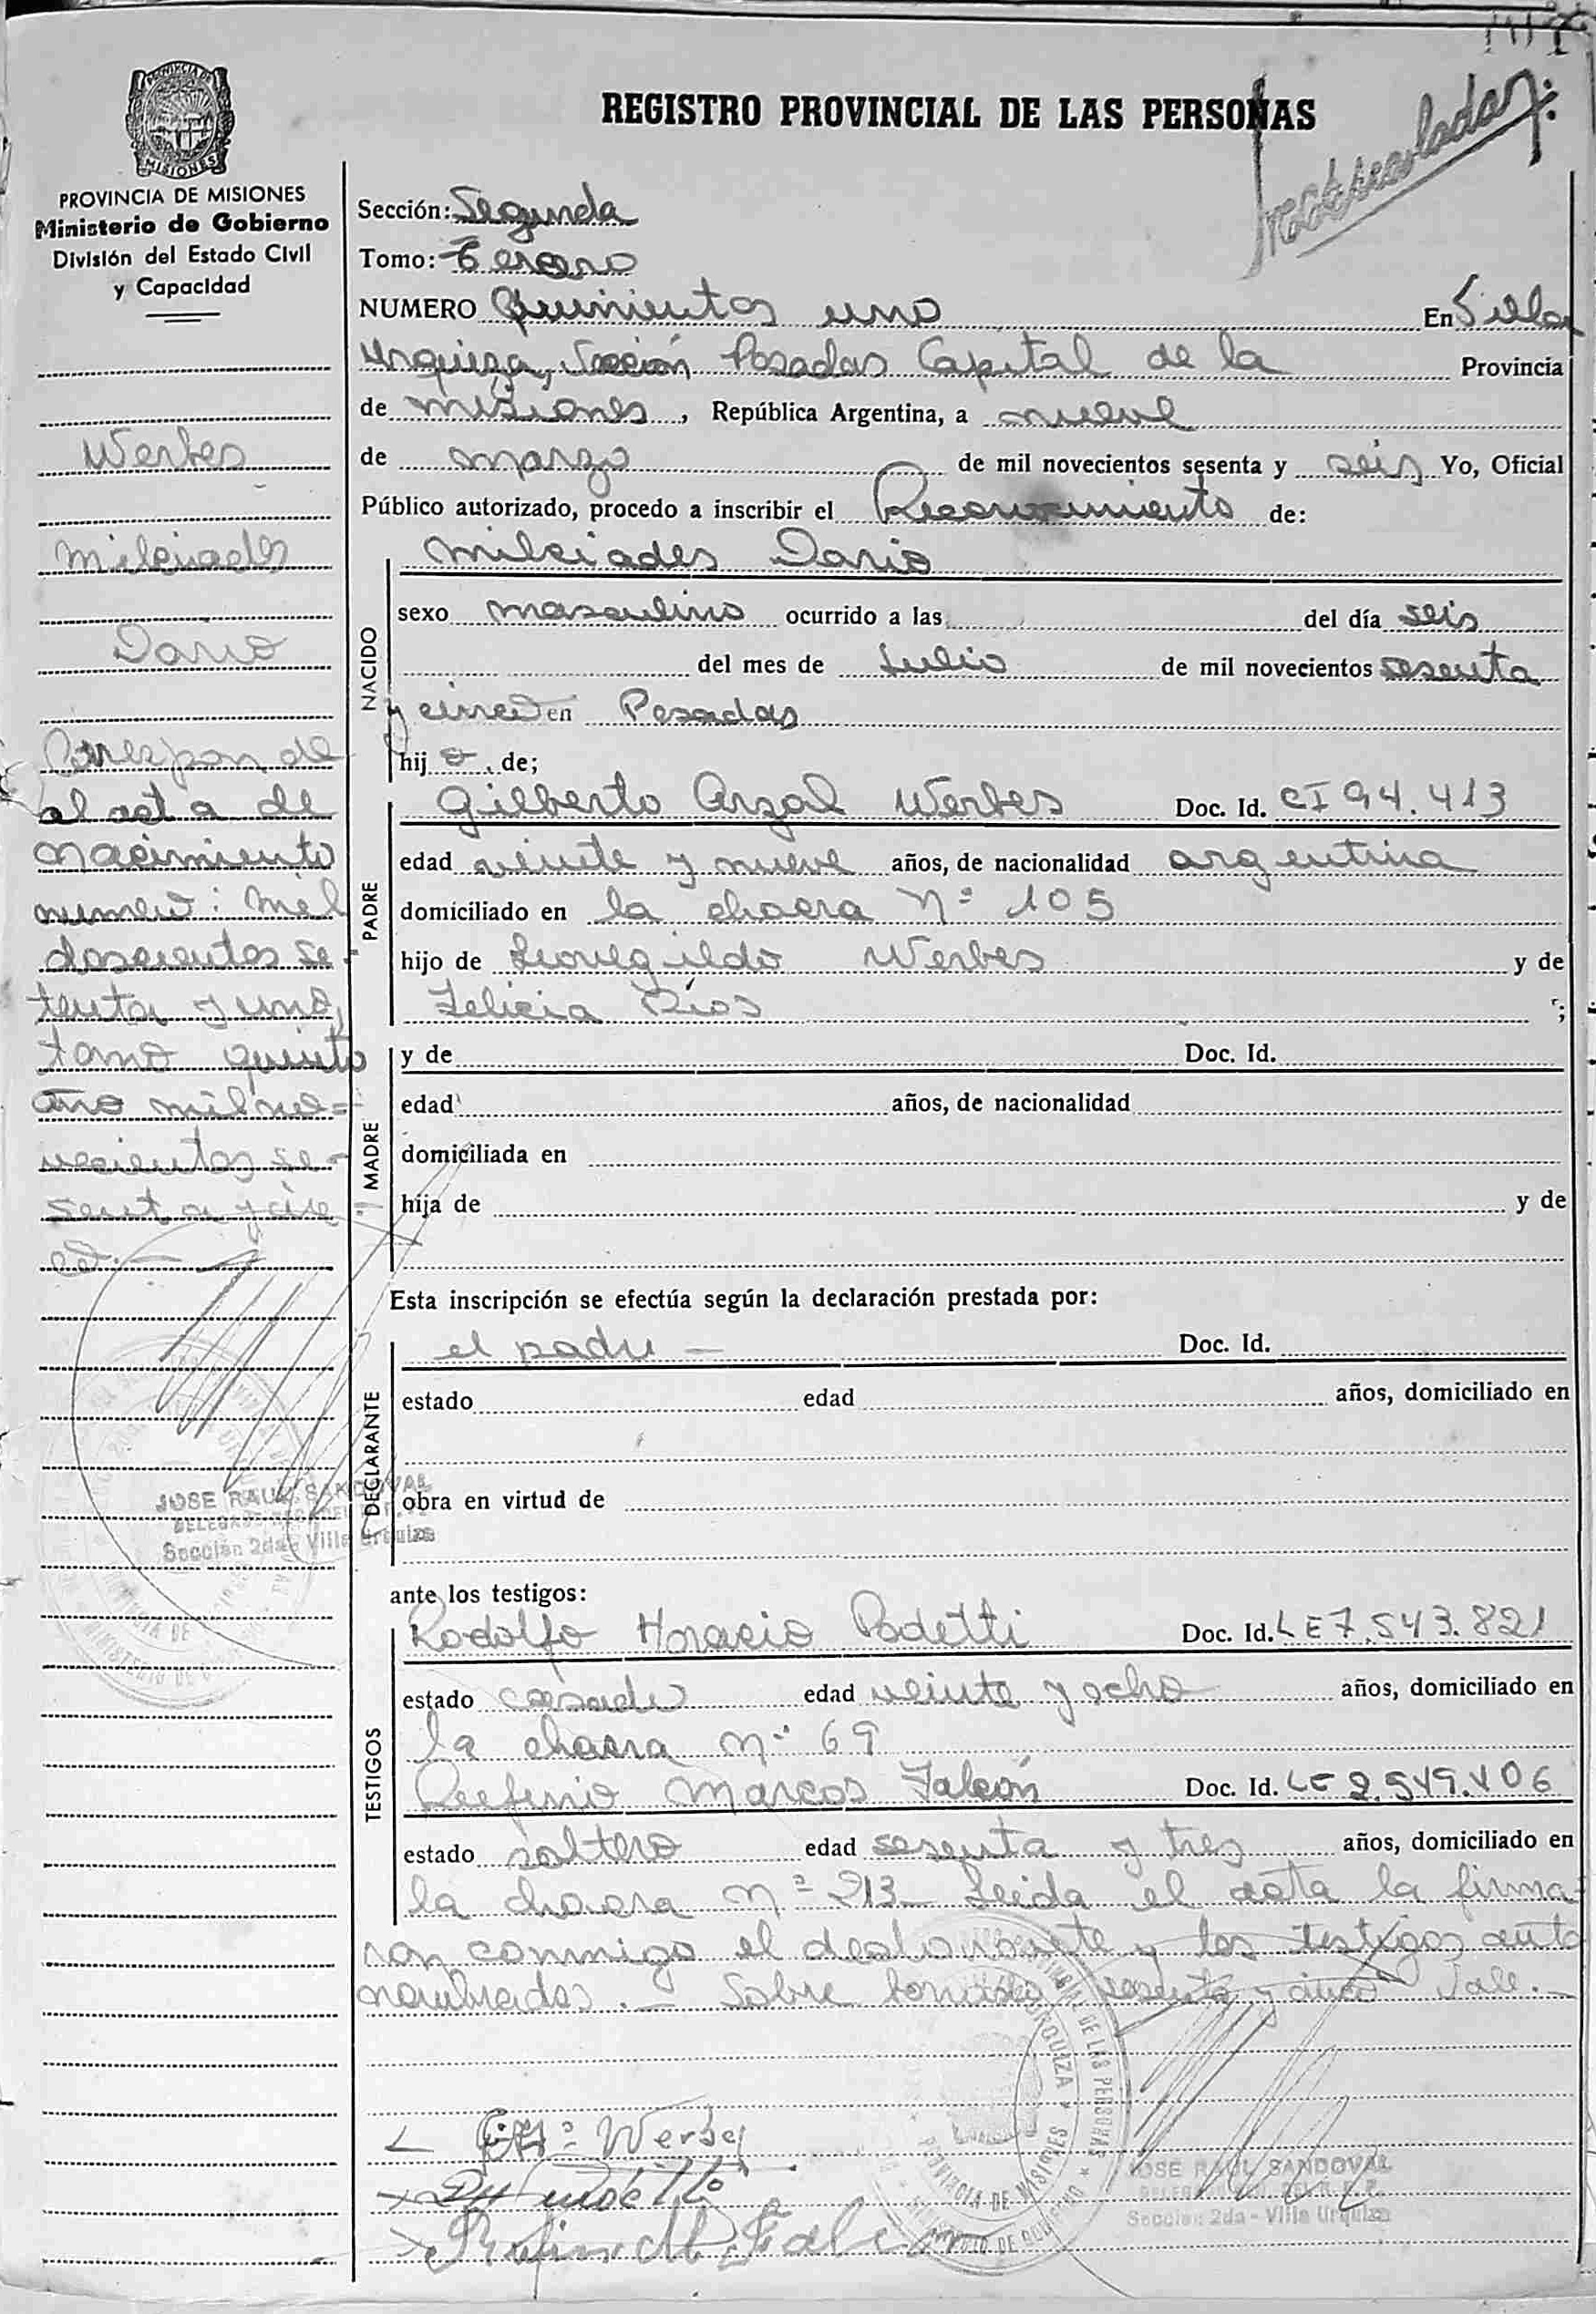 REGISTRO PROVINCIAL DE LAS PERSONAS
PROVINCIA DE
MISIONES
PROVINCIA DE MISIONES
Ministerio de Gobierno
División del Estado Civil
y Capacidad
Werbes
Milciades
Dario
Corresponde
al acta de
nacimiento
numero: mil
doscientos se-
tenta y uno,
tomo quinto
año mil no=
vecientos se-
senta y cin
co.-
JOSE RAUL SANDOVAL
Sección 2da - Villa Urquiza
Sección: Segunda
Tomo: Tercero
NUMERO Quinientos uno En Villa
Urquiza, Sección Posadas Capital de la Provincia
de Misiones, República Argentina, a nueve
de marzo de mil novecientos sesenta y seis Yo, Oficial
Público autorizado, procedo a inscribir el Reconocimiento de:
NACIDO
Milciades Dario
sexo masculino ocurrido a las del día seis
del mes de Julio de mil novecientos sesenta
y cinco en Posadas
hijo, de;
PADRE
Gilberto Arzal Werbes Doc. Id. CI 94.413
edad veinte y nueve años, de nacionalidad argentina
domiciliado en la chacra Nº 105
hijo de Werbes y de
Felicia Rios ;
MADRE
y de Doc. Id.
edad años, de nacionalidad
domiciliada en
hija de y de
Esta inscripción se efectúa según la declaración prestada por:
DECLARANTE
el padre - Doc. Id.
estado edad años, domiciliado en
obra en virtud de
ante los testigos:
TESTIGOS
Rodolfo Horacio Podetti Doc. Id. LE 7.543.821
estado casado edad veinte y ocho años, domiciliado en
la chacra Nº 69
Marcos Falcón Doc. Id. LE 2.549.406
estado soltero edad sesenta y tres años, domiciliado en
la chacra Nº 213- Leida el acta la firma-
ron conmigo el declarante y los testigos ante
nombrados.- Sobre borrado sesenta y cinco Vale.-
Werbes
JOSE RAUL SANDOVAL
Sección 2da - Villa Urquiza